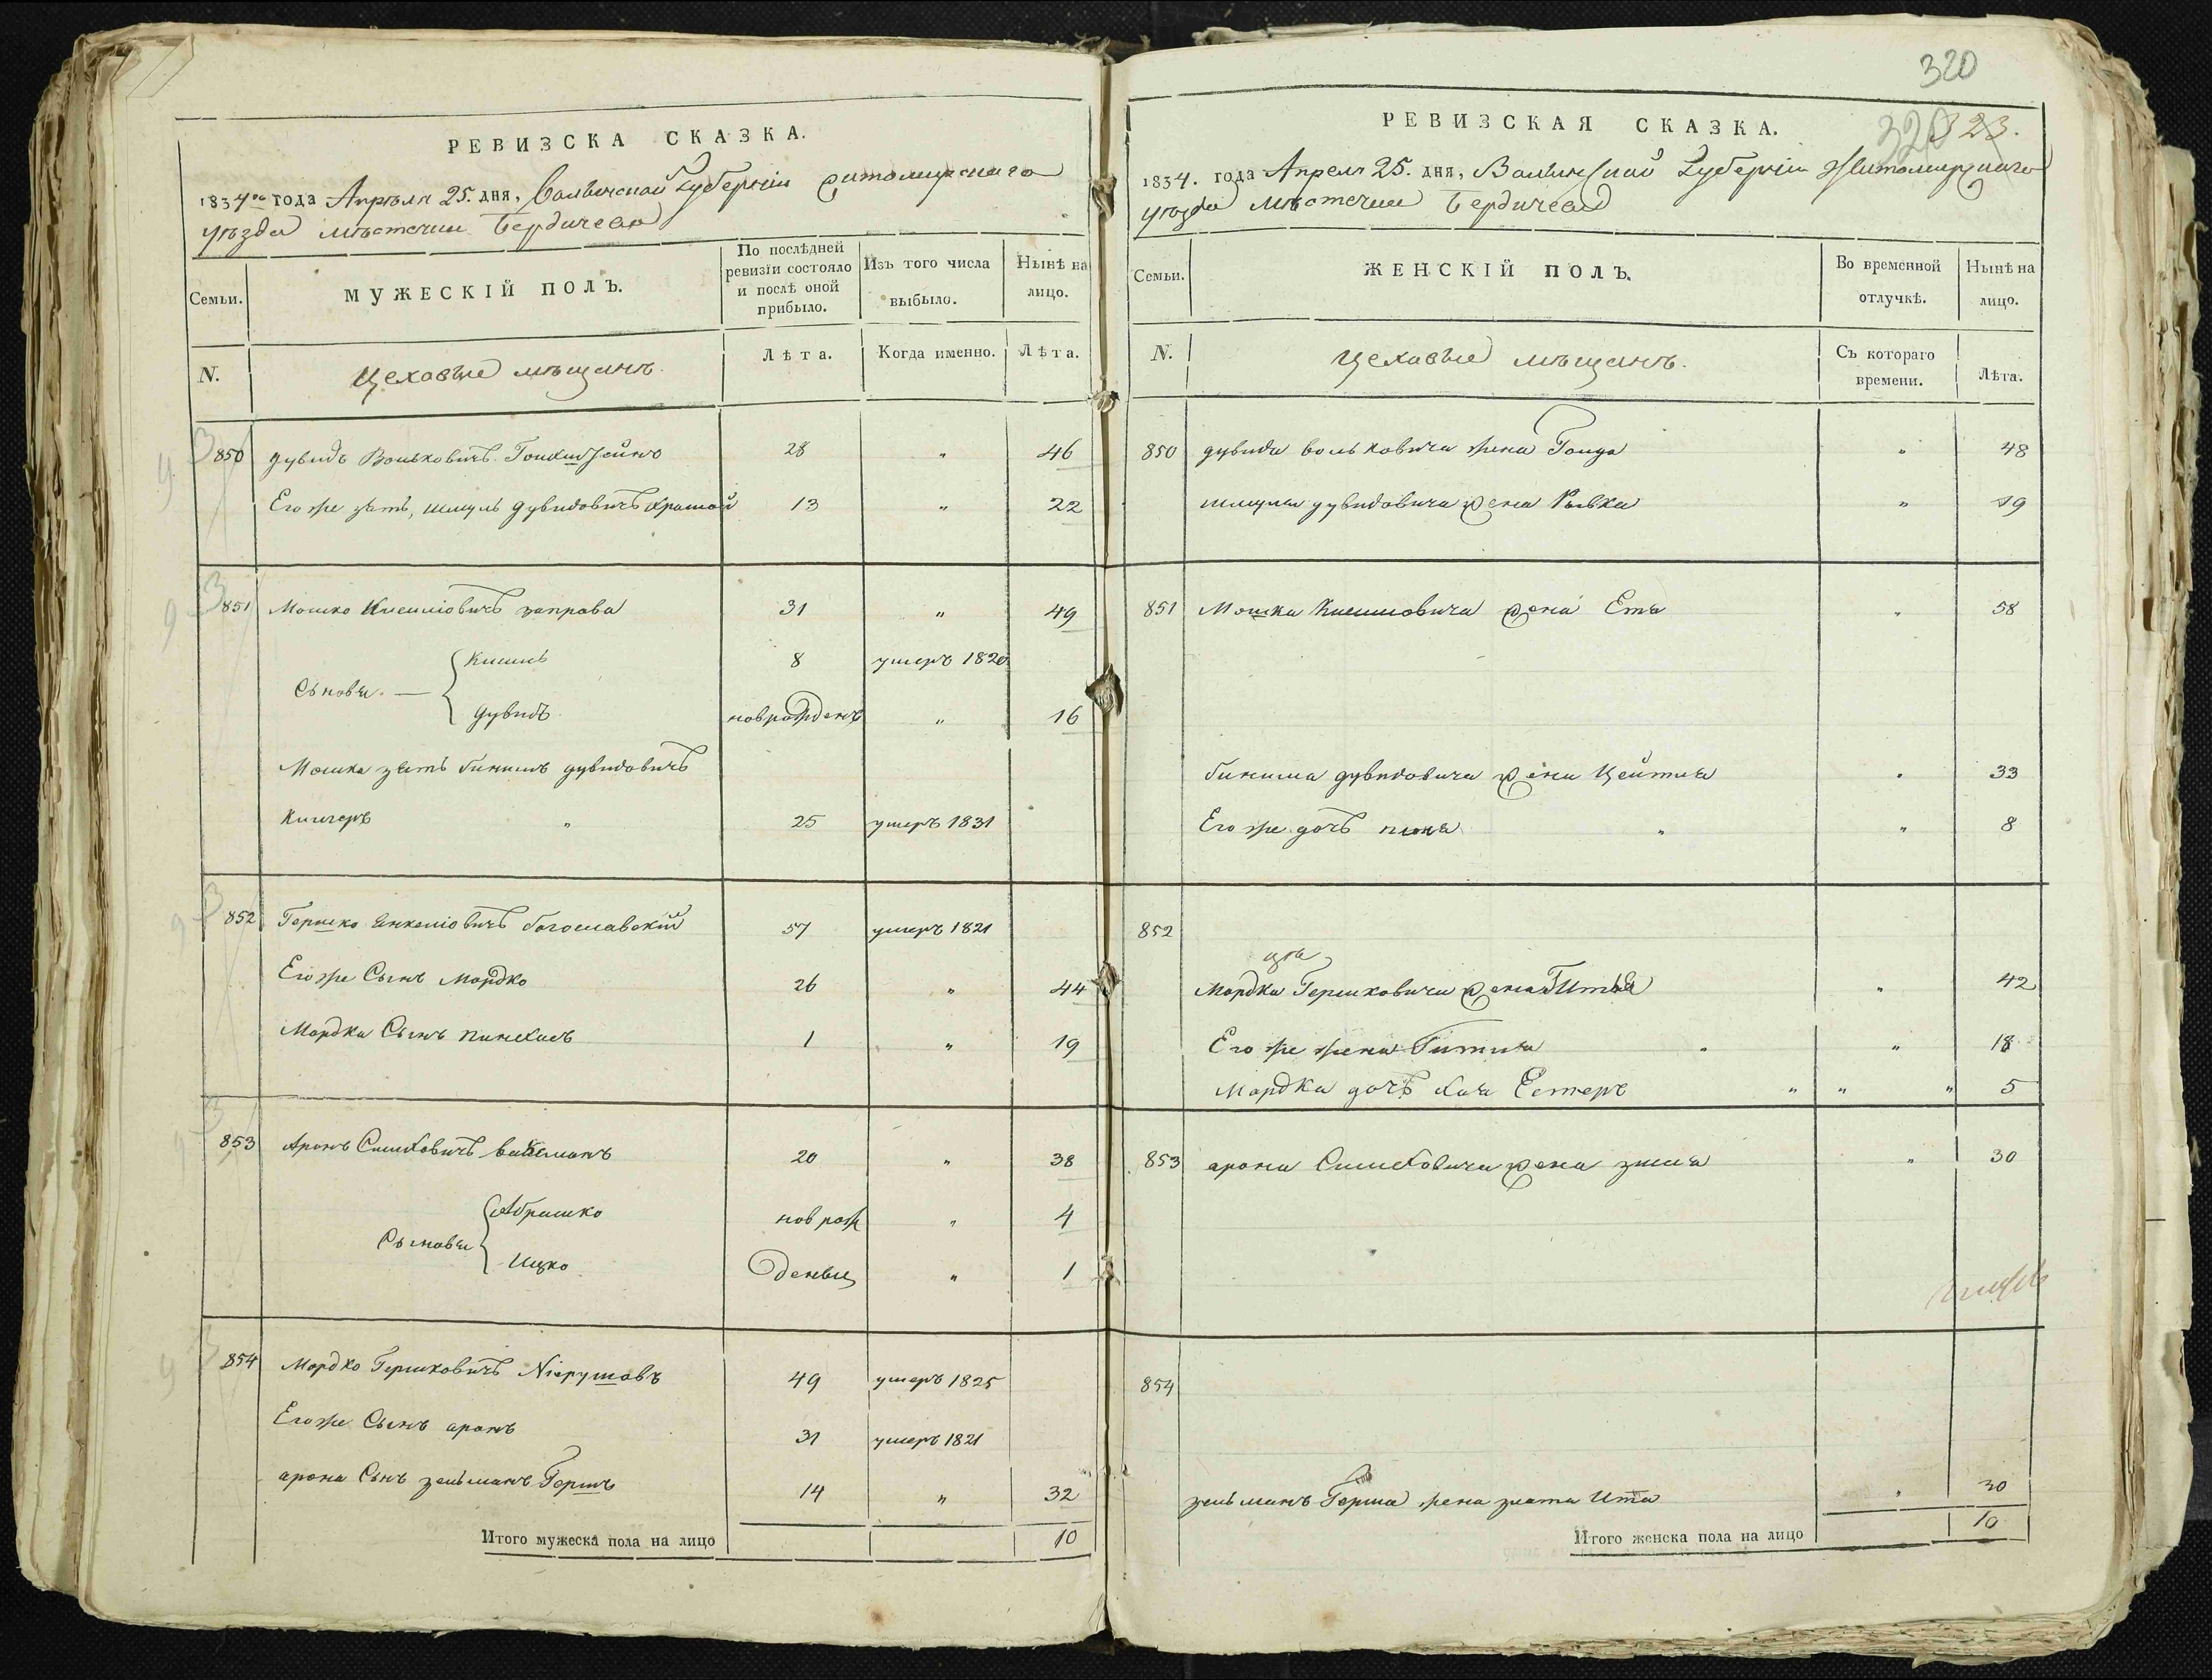 РЕВИЗСКА СКАЗКА.
1834го года Апрѣля 25. дня, Волынской Губерніи Житомирскаго
уѣзда мѣстечки Бердичева
Семьи.
МУЖЕСКІЙ ПОЛЪ.
По послѣдней ревизіи состояло и послѣ оной прибыло.
Изъ того числа выбыло.
Нынѣ на лицо.
N.
Цеховые мѣщанъ.
Лѣта.
Когда именно.
Лѣта.
850 Дувидъ Вольковичъ 28 " 46
Его же зять, Шмуль Дувидовичъ 13 " 22
851 Мошко Кисиліовичъ запрова 31 " 49
Сыновья. — Кисиль 8 умеръ 1820
Дувидъ новрожденъ " 16
Мошка зять бинишъ дувидовичъ
" 25 умеръ 1831
852 Гершко Янкеліовичъ богославскій 57 умеръ 1821
Его же Сынъ Мордко 26 " 44
Мордка Сынъ пинхасъ 1 " 19
853 Аронъ Симховичъ 20 " 38
Сыновья Абрамко новрож " 4
Ицко деныи " 1
854 Мордко Гершковичъ 49 умеръ 1825
Его же Сынъ аронъ 31 умеръ 1821
арона Сынъ зельманъ Гершъ 14 " 32
Итого мужеска пола на лицо 10
320
320 323.
РЕВИЗСКАЯ СКАЗКА.
1834. года Апреля 25. дня, Волынской Губерніи Житомирскаго
уѣзда мѣстечки Бердичева
Семьи.
ЖЕНСКІЙ ПОЛЪ.
Во временной отлучкѣ.
Нынѣ на лицо.
N.
Цеховые мѣщанъ.
Съ котораго времени.
Лѣта.
850 дувида вольковича жена " 48
шмуля дувидовича жена Рывка " 19
851 Мошка Кисилиовича жена Етя " 58
биниша дувидовича жена Цейтля " 33
Его же дочь " " 8
852
Мордка Гершковича жена " 42
Его же жена Гитля " " 18
Мордка дочь хая Естеръ " " " 5
853 арона Симховича жена " 30
854
зельманъ Герша жена злата Ита " 30
Итого женска пола на лицо 10